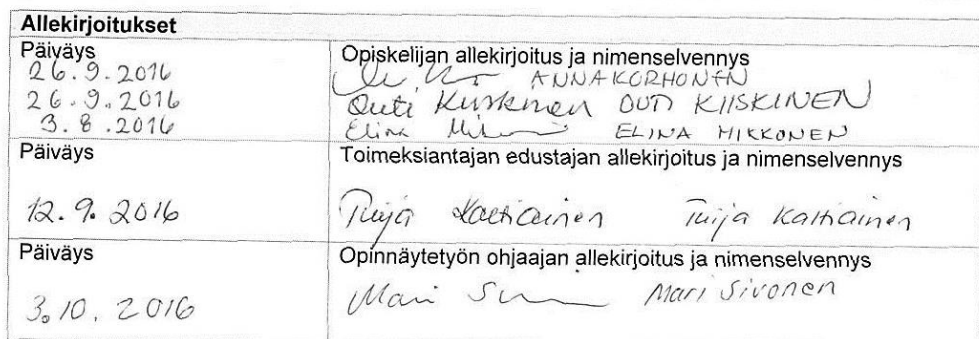 Allekirjoitukset
Päiväys
26.9.2016
26.9.2016
3.8.2016
Opiskelijan allekirjoitus ja nimenselvennys
ANNA KORHONEN
Outi Kiiskinen OUTI KIISKINEN
Elina ELINA MIKKONEN
Päiväys
12.9.2016
Toimeksiantajan edustajan allekirjoitus ja nimenselvennys
Tuija Kaltiainen Tuija Kaltiainen
Päiväys
3.10.2016
Opinnäytetyön ohjaajan allekirjoitus ja nimenselvennys
Mari Mari Sivonen